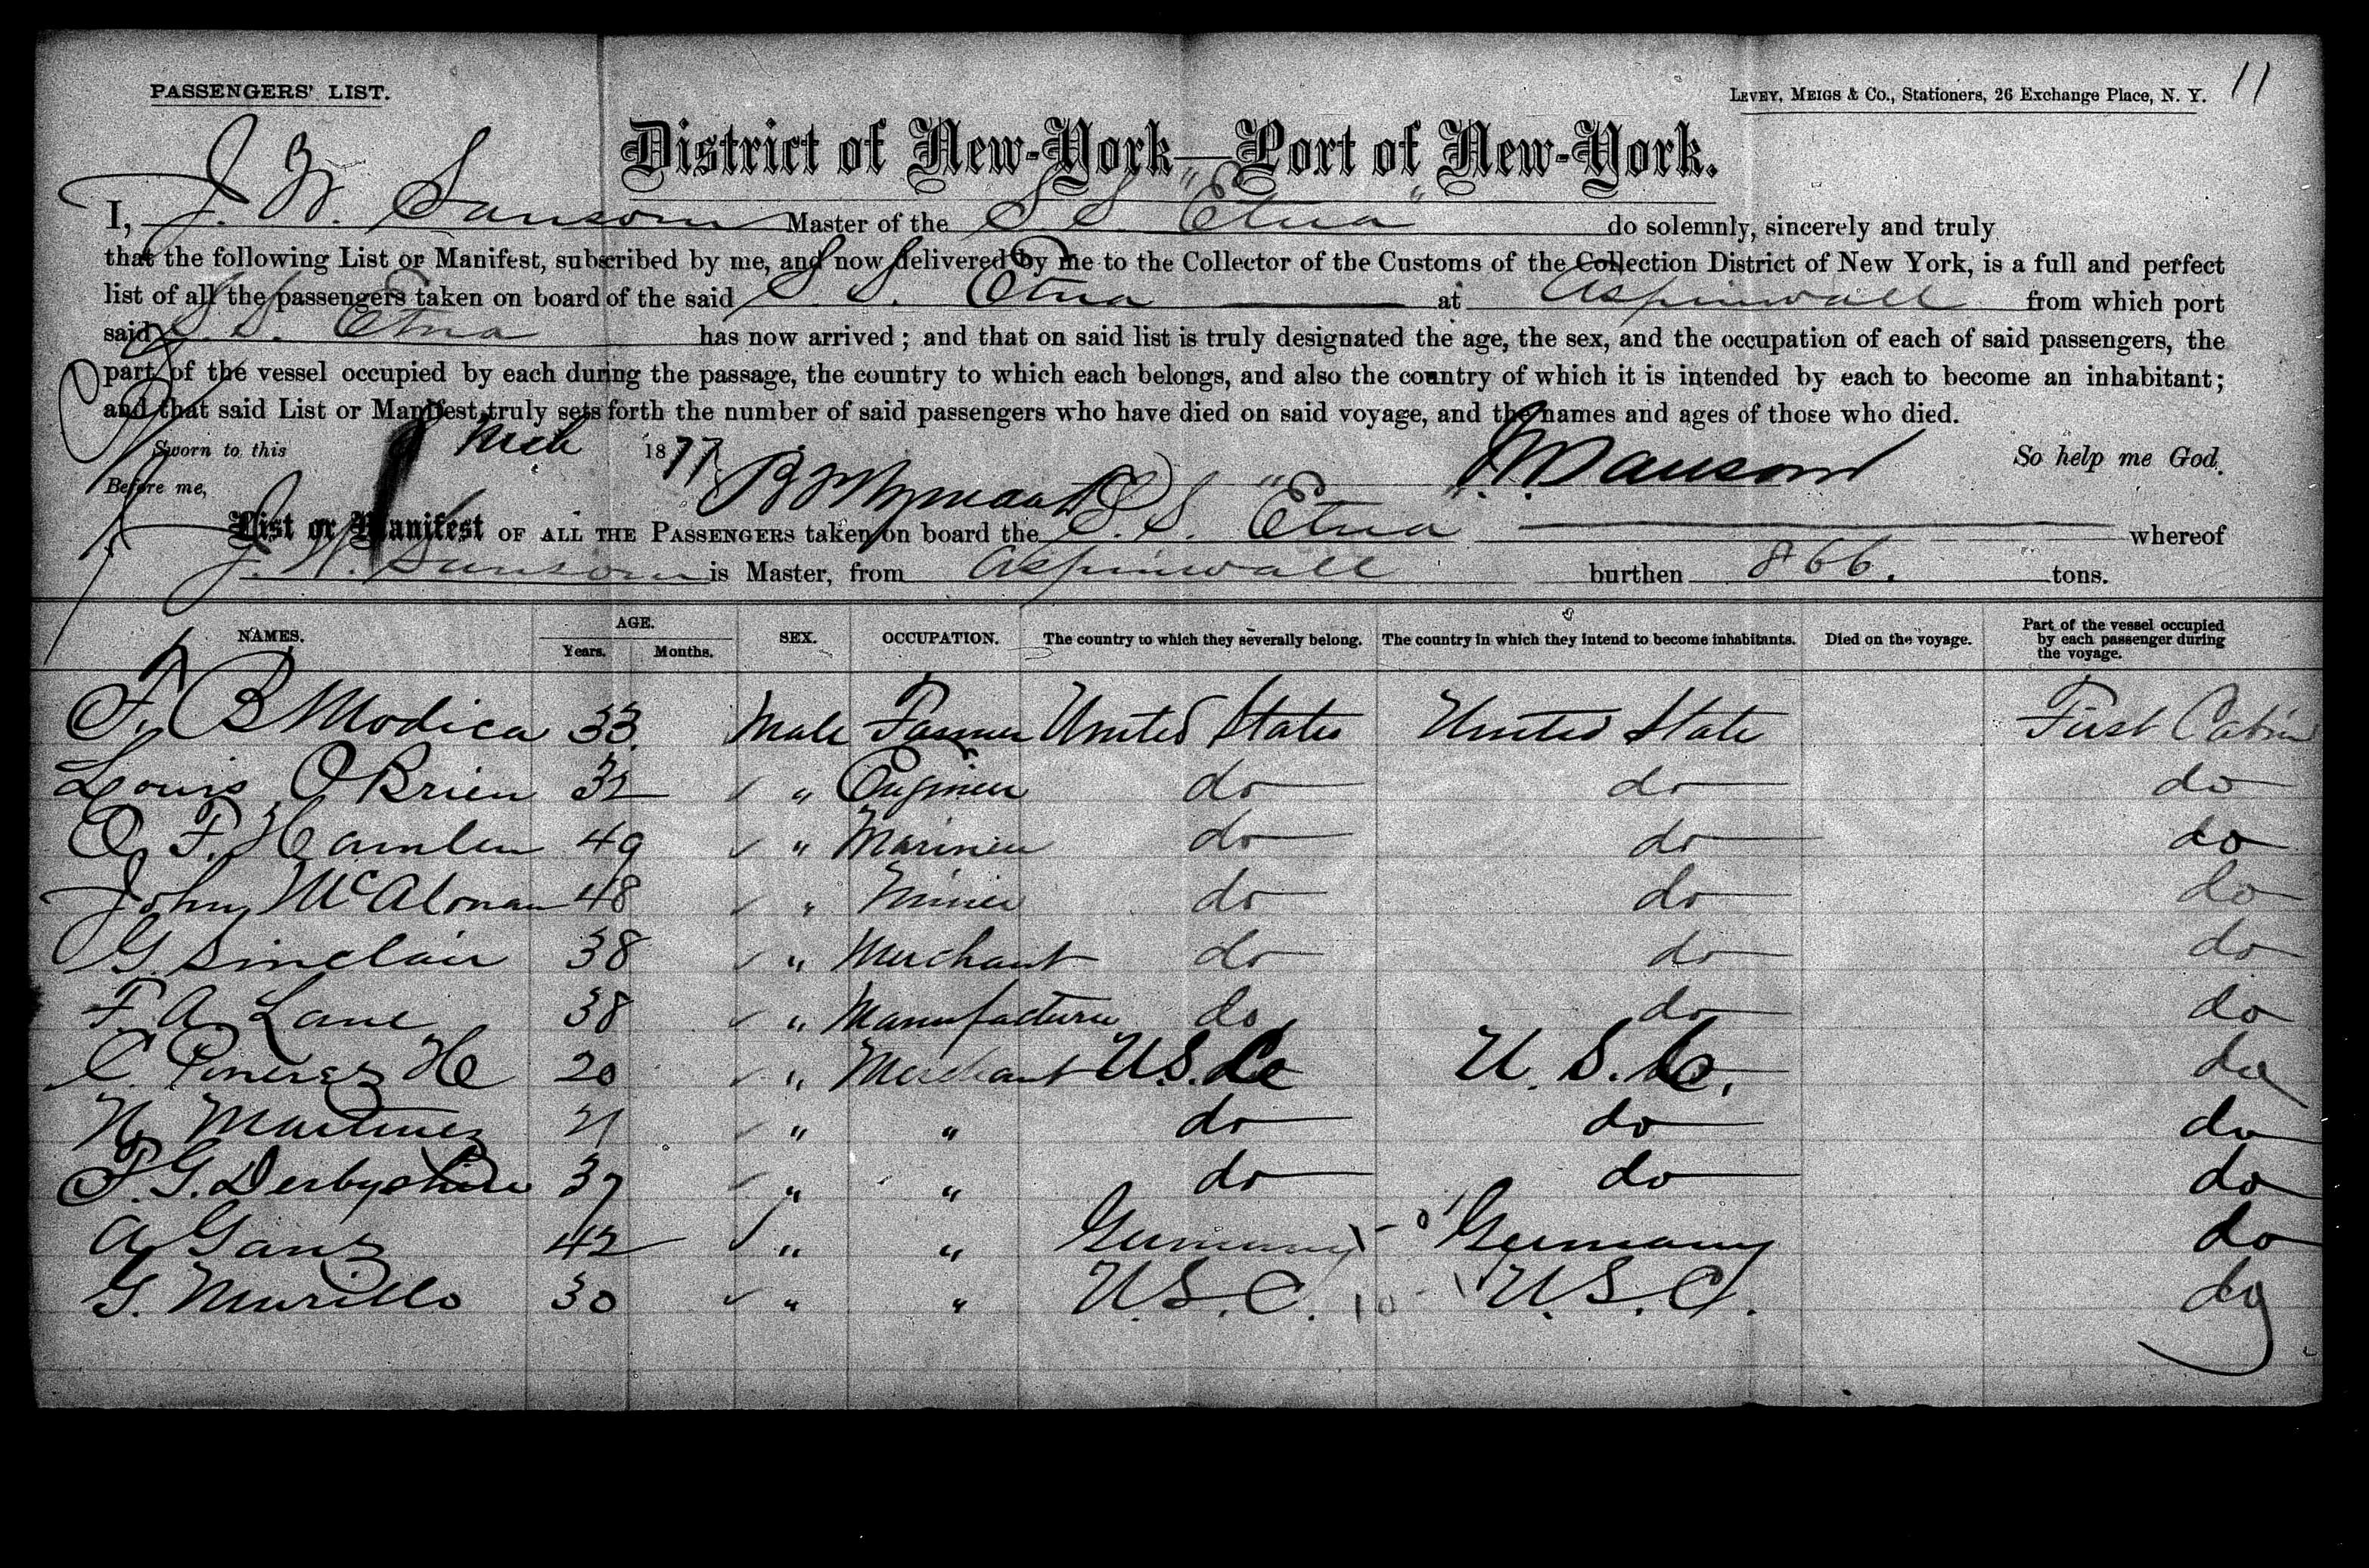 11
PASSENGERS' LIST.
LEVEY, MEIGS & Co., Stationers, 26 Exchange Place, N. Y.
District of New-York—Port of New-York.
I, J. W. Sansom Master of the S S "Etna" do solemnly, sincerely and truly
that the following List or Manifest, subscribed by me, and now delivered by me to the Collector of the Customs of the Collection District of New York, is a full and perfect
list of all the passengers taken on board of the said S S. Etna at Aspinwall from which port
said S. S. Etna has now arrived; and that on said list is truly designated the age, the sex, and the occupation of each of said passengers, the
part of the vessel occupied by each during the passage, the country to which each belongs, and also the country of which it is intended by each to become an inhabitant;
and that said List or Manifest truly sets forth the number of said passengers who have died on said voyage, and the names and ages of those who died.
Sworn to this Mch 1877 JW Sansom So help me God.
Before me,
List or Manifest OF ALL THE PASSENGERS taken on board the S. S. "Etna" whereof
J. W. Sansom is Master, from Aspinwall burthen 866. tons.
NAMES. AGE. Years. Months. SEX. OCCUPATION. The country to which they severally belong. The country in which they intend to become inhabitants. Died on the voyage. Part of the vessel occupied by each passenger during the voyage.
F. B Modica 33 Male Farmer United States United State First Cabin
Louis O'Brien 32 " Engineer do do do
O. F. Hamlen 49 " Mariner do do do
John McAlonan 48 " Miner do do do
G. Sinclair 38 " Merchant do do do
F. A Lane 38 " Manufacturer do do do
C. He 20 " Merchant U.S. Co U. S. Co. do
N. Martinez 21 " " do do do
F. G. Derbyshire 37 " " do do do
A Ganz 42 " " Germany Germany do
G. Murillo 30 " " U.S.C. U.S.C. do